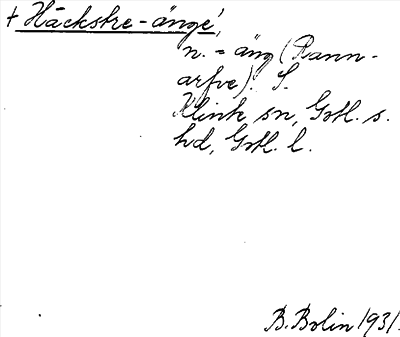 + Häckstre-änge',
n. = äng (Rann-
arfve). S.
Klink sn, Gotl. s.
hd, Gotl. l.
B. Bolin 1931.